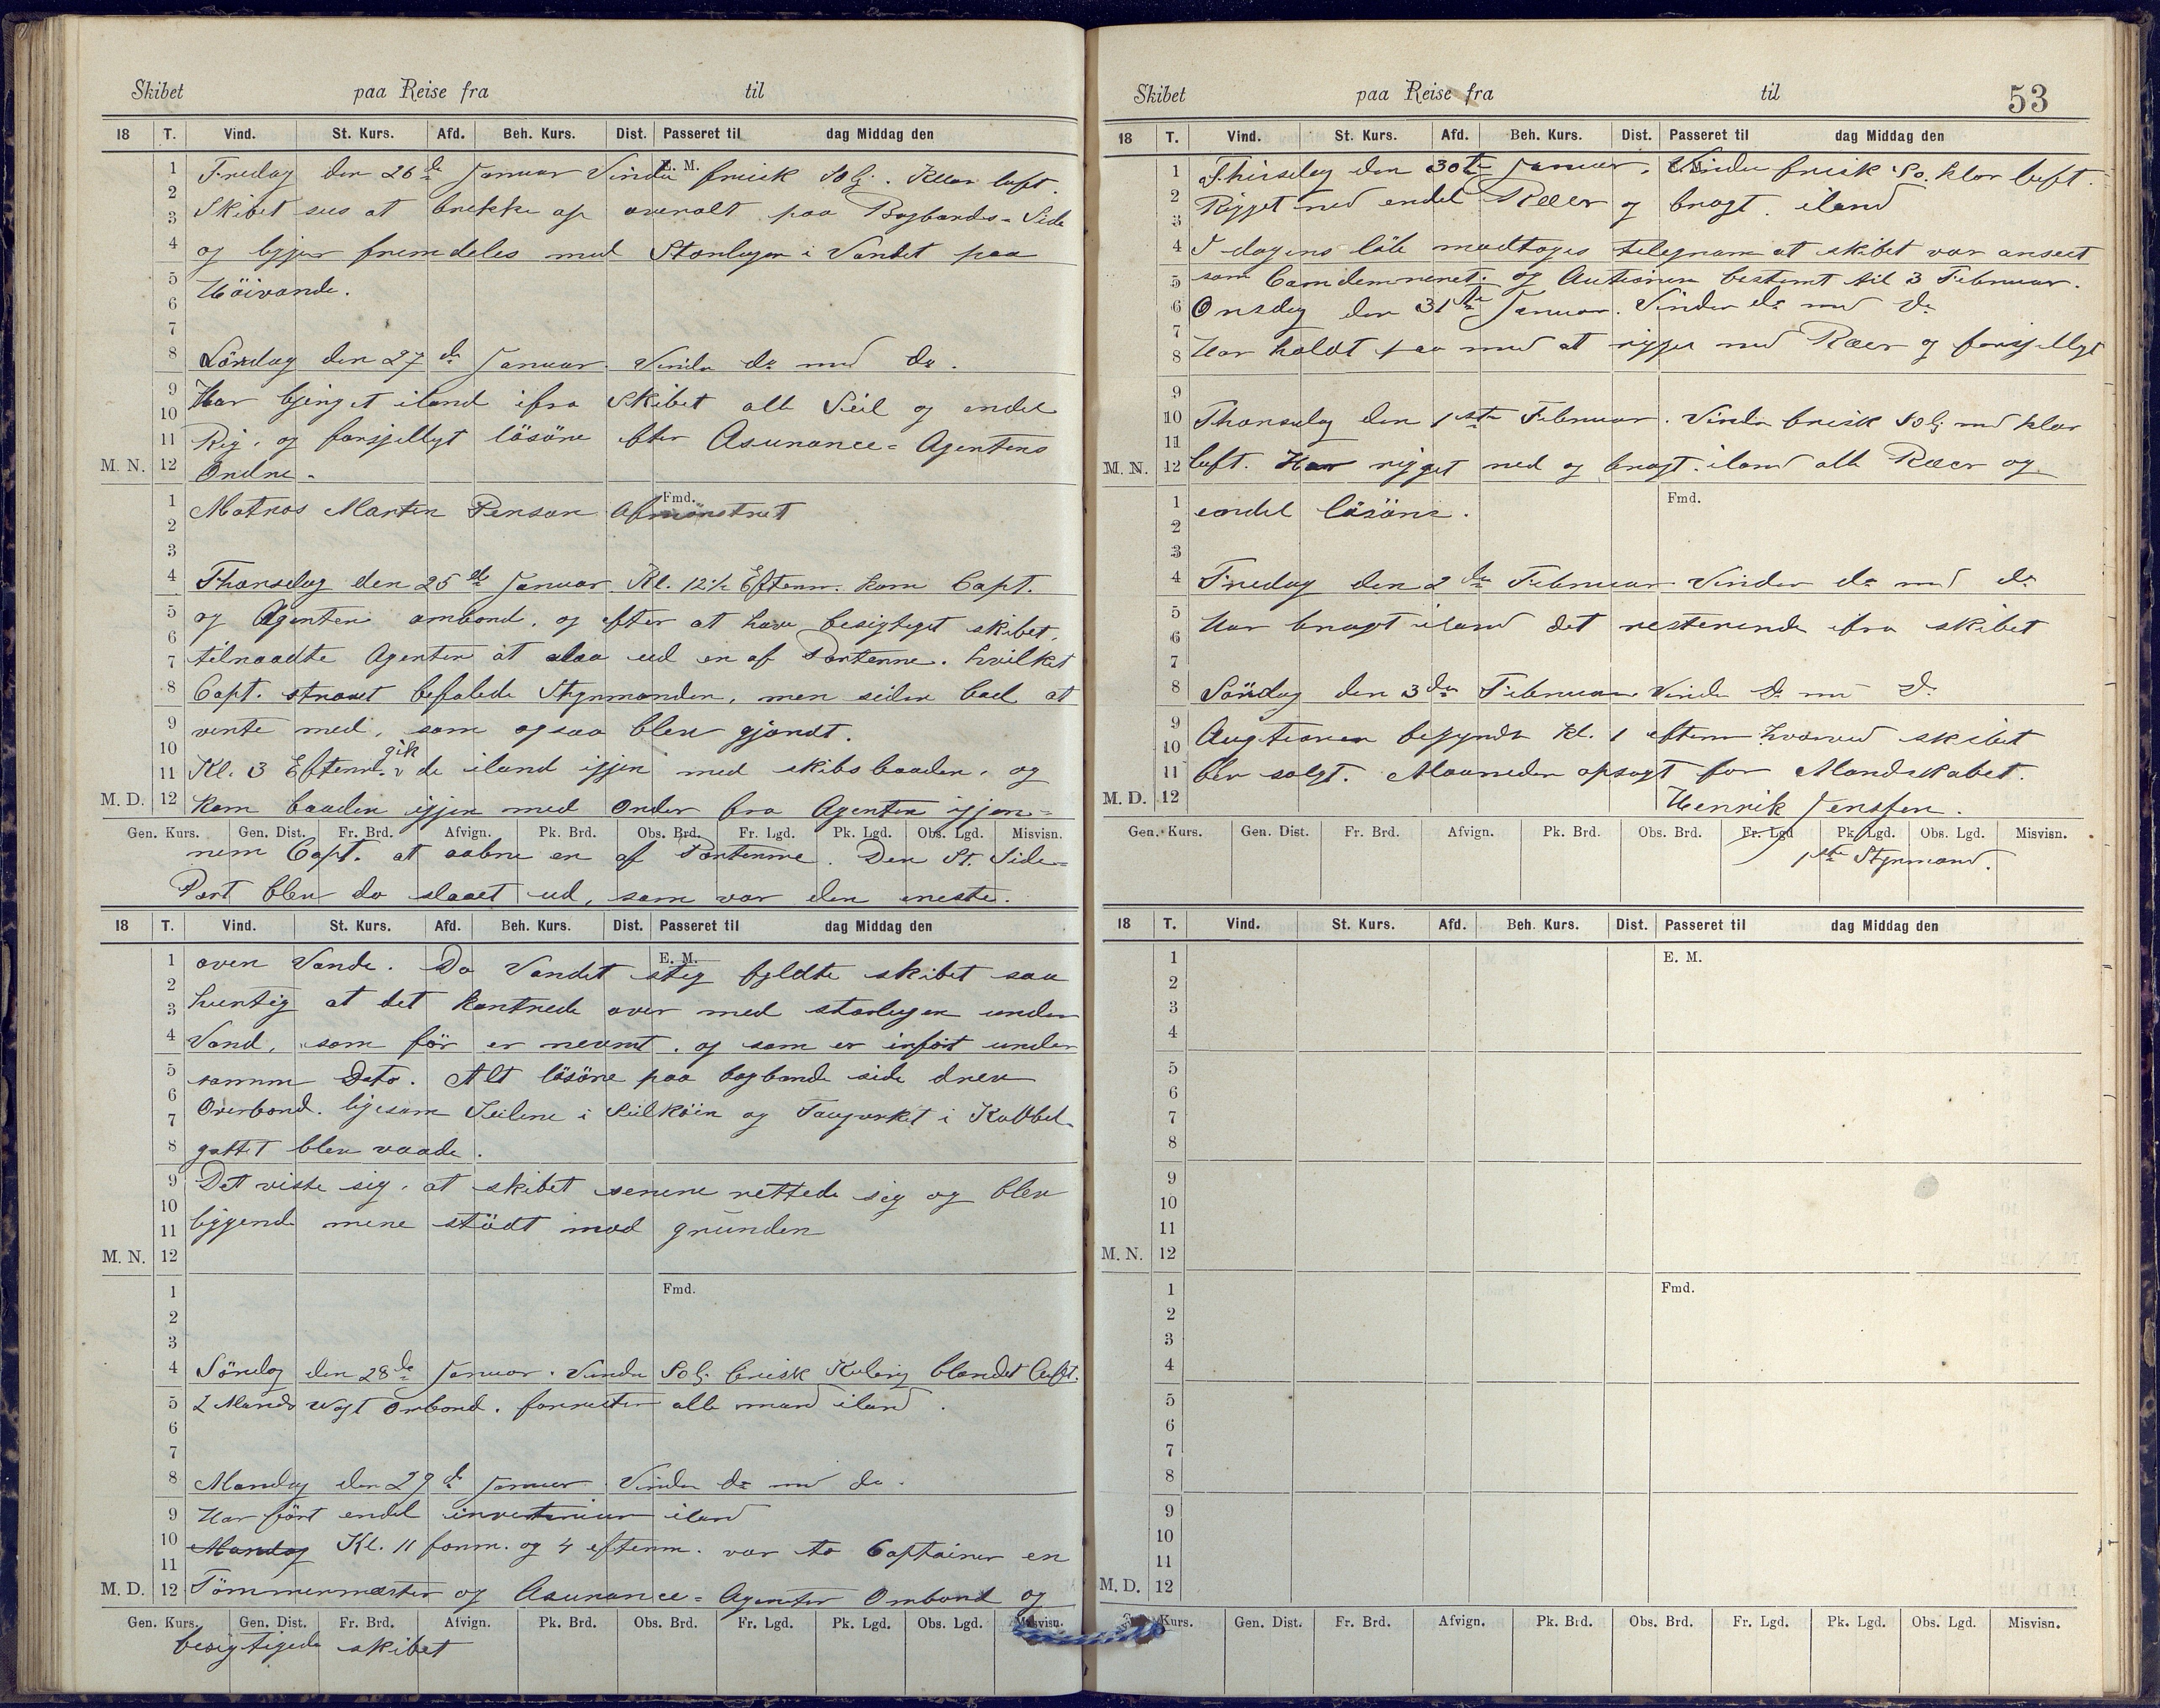 Skibet paa Reise fra til
18 T. Vind. St. Kurs. Afd. Beh. Kurs. Dist. Passeret til dag Middag den
E. M.
Fredag den 26de Januar Vinden frisk Solj. Klar luft.
Skibet sees at brekke op overalt paa Bagbords-Side
og ligger fremdeles med Storlugen i Vandet paa
Höivande.
Lördag den 27de Januar. Vinden do med do.
Har bjerget iland ifra Skibet alle Seil og endel
Rig. og forsjelligt lösöre efter Asurance-Agentens
M. N. Ordre.
Fmd.
Matros Marten Person Afmönstret
Thorsdag den 25de Januar Kl. 12½ Efterm. kom Capt.
og Agenten ombord. og efter at have besigtiget skibet,
tilraadte Agenten at slaa ud en af Portenne. hvilket
Capt. stravet befalede Styrmanden, men siden bad at
vente med, som ogsaa blev gjordt.
Kl. 3 Efterm. gik de iland igjen med skibsbaaden. og
M. D. kom baaden igjen med Order fra Agenten igjen-
Gen. Kurs. Gen. Dist. Fr. Brd. Afvign. Pk. Brd. Obs. Brd. Fr. Lgd. Pk. Lgd. Obs. Lgd. Misvisn.
nem Capt. at aabne en af Portenne. Den St. Side-
Port blev da slaaet ud, som var den eneste.
18 T. Vind. St. Kurs. Afd. Beh. Kurs. Dist. Passeret til dag Middag den
E. M.
oven Vande. Da Vandet steg fyldte skibet saa
hurtig at det kantrede over med storlugen under
Vand, som för er nevnt. og som er infört under
samme Dato. Alt lösöre paa bagbords side drev
Overbord. ligesom Seilene i Seilköien og Taugverket i Kabbel-
gattet blev vaade.
Det viste sig. at skibet senere rettede sig og blev
liggende mere stödt mod grunden
M. N.
Fmd.
Söndag den 28de Januar. Vinden Solj. frisk Kuling blandet luft.
2 Mands Vagt Ombord. forresten alle mand iland.
Mandag den 29de Januar. Vinden do med do.
Har fört endel inventarium iland
Mandag Kl. 11 form. og 4 efterm. var to Captainer en
M. D. Tömmermester og Asurance-Agenten Ombord og
Gen. Kurs. Gen. Dist. Fr. Brd. Afvign. Pk. Brd. Obs. Brd. Fr. Lgd. Pk. Lgd. Obs. Lgd. Misvisn.
besigtigede skibet
Skibet paa Reise fra til 53
18 T. Vind. St. Kurs. Afd. Beh. Kurs. Dist. Passeret til dag Middag den
Thirsdag den 30te Januar. Vinden frisk So. klar luft.
Rigget ned endel Ræer og bragt iland
I dagens löb modtoges telegram at skibet var anseet
som Comdemneret. og Autionen bestemt til 3 Februar.
Onsdag den 31te Januar. Vinden do med do
Har holdt paa med at rigge ned Ræer og forsjelligt
Thorsdag den 1ste Februar. Vinden frisk Solj med klar
M. N. luft. Har rigget ned og bragt iland alle Ræer og
Fmd.
endel lösöre.
Fredag den 2den Februar Vinden do med do
Har bragt iland det resterende ifra skibet
Lördag den 3die Februar Vinden do med do
Augtionen begyndte Kl. 1 efterm hvorved skibet
blev solgt. Maaneden opsagt for Mandskabet.
M. D. Henrik Jenssen.
Gen. Kurs. Gen. Dist. Fr. Brd. Afvign. Pk. Brd. Obs. Brd. Fr. Lgd Pk. Lgd. Obs. Lgd. Misvisn.
1ste Styrmand.
18 T. Vind. St. Kurs. Afd. Beh. Kurs. Dist. Passeret til dag Middag den
E. M.
M. N.
Fmd.
M. D.
Kurs. Gen. Dist. Fr. Brd. Afvign. Pk. Brd. Obs. Brd. Fr. Lgd. Pk. Lgd. Obs. Lgd. Misvisn.